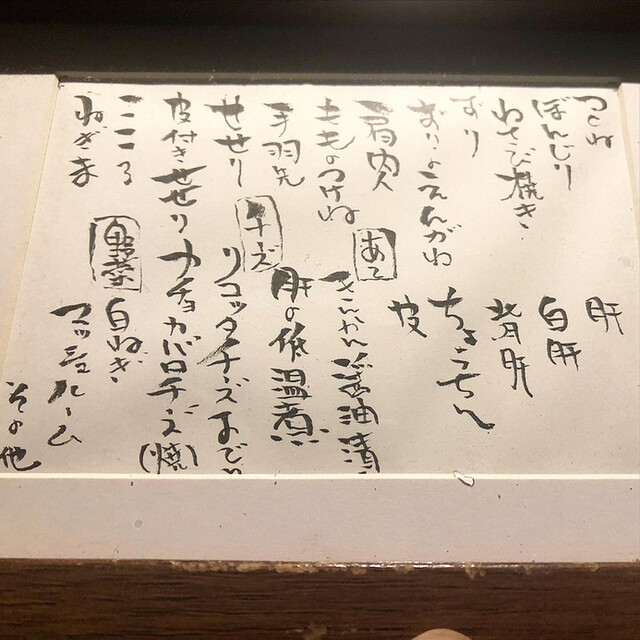 つくね
ぼんじり
わさび焼き
ずり
ずりのえんがわ
肩肉
もものつけね
手羽先
せせり
皮付きせせり
こころ
ねぎま
肝
白肝
背肝
ちょうちん
皮
あて
きんかん醤油漬
肝の低温煮
チーズ
リコッタチーズ
カチョカバロチーズ(焼)
野菜
白ねぎ
マッシュルーム
その他